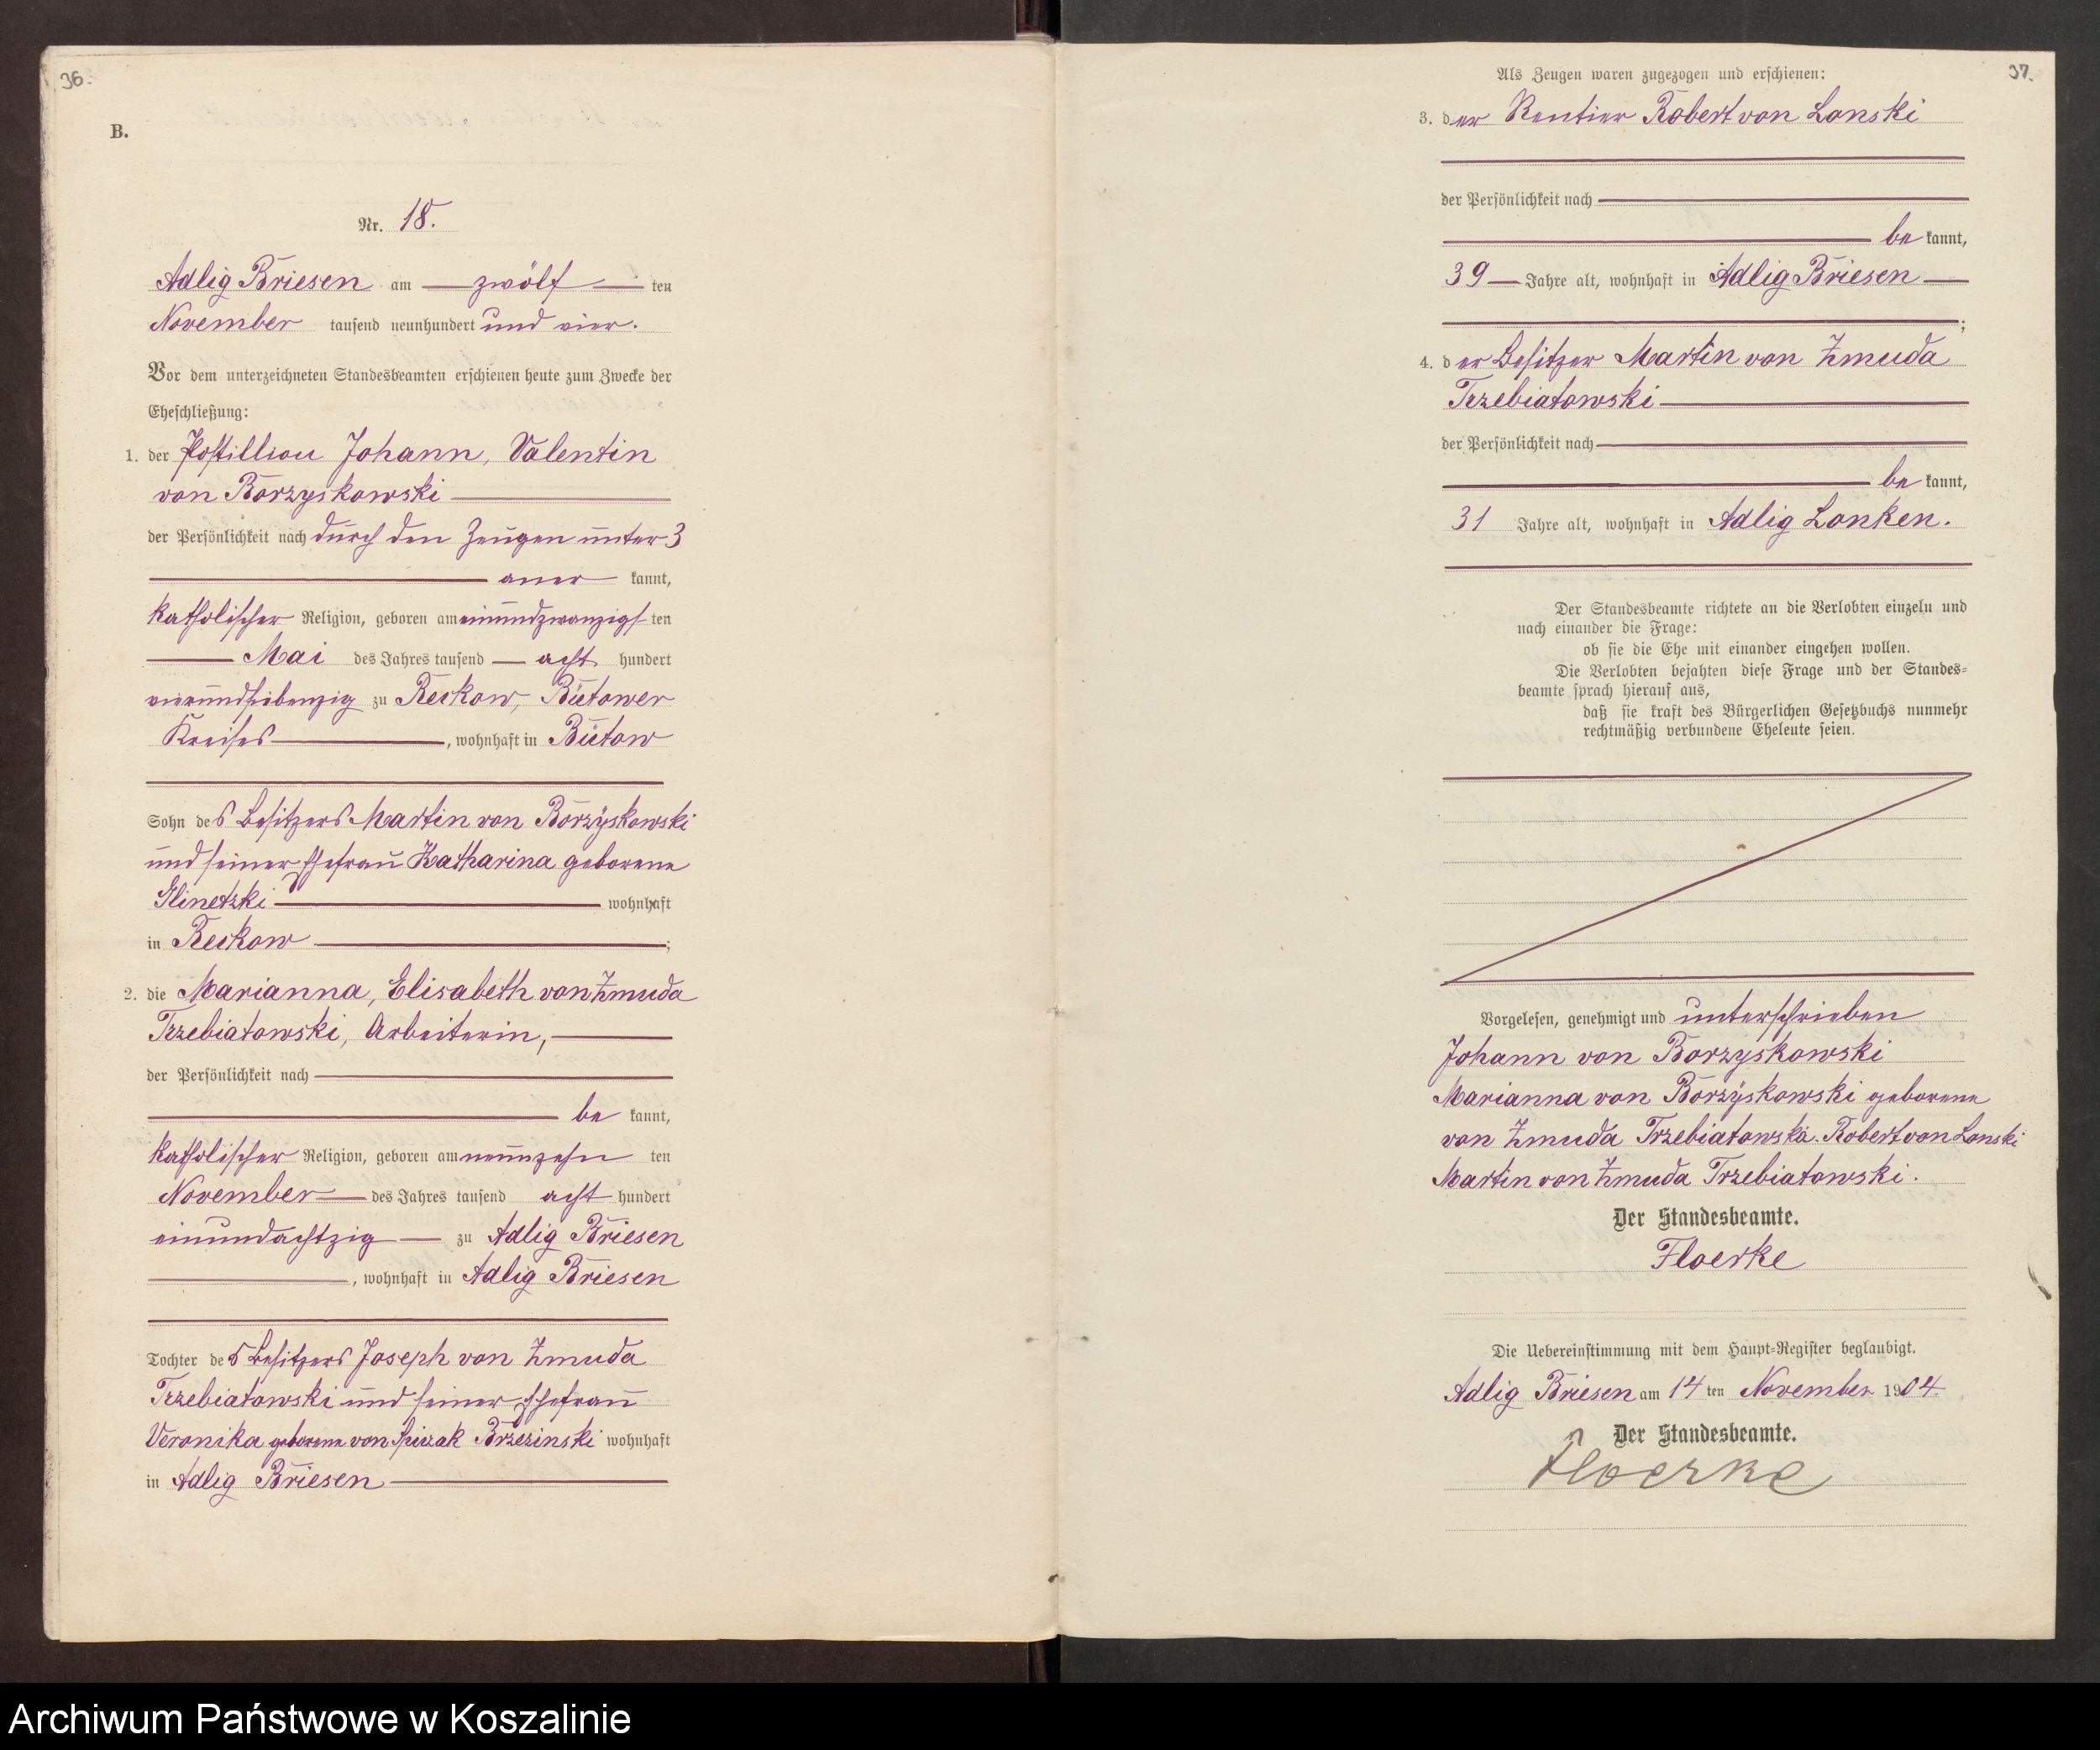 36.
B.
Nr. 18.
Adlig Briesen am zwölf ten
November tausend neunhundert und vier.
Vor dem unterzeichneten Standesbeamten erschienen heute zum Zwecke der
Eheschließung:
1. der Postillion Johann, Valentin
von Borzyskowski
der Persönlichkeit nach durch den Zeugen unter 3
aner kannt,
katholischer Religion, geboren am einundzwanzigs ten
Mai des Jahres tausend acht hundert
vierundsiebenzig zu Reckow, Bütower
Kreises, wohnhaft in Bütow
Sohn des Besitzers Martin von Borzÿskowski
und seiner Ehefrau Katharina geborene
Glinetzki wohnhaft
in Reckow;
2. die Marianna, Elisabeth von Zmuda
Trzebiatowski, Arbeiterin,
der Persönlichkeit nach
be kannt,
katholischer Religion, geboren am neunzehn ten
November des Jahres tausend acht hundert
einundachtzig zu Adlig Briesen
, wohnhaft in Adlig Briesen
Tochter des Besitzers Joseph von Zmuda
Trzebiatowski und seiner Ehefrau
Veronika geborene von Spiczak Brzezinski wohnhaft
in Adlig Briesen
37.
Als Zeugen waren zugezogen und erschienen:
3. der Rentier Robert von Lonski
der Persönlichkeit nach
be kannt,
39 Jahre alt, wohnhaft in Adlig Briesen
;
4. der Besitzer Martin von Zmuda
Trzebiatowski
der Persönlichkeit nach
be kannt,
31 Jahre alt, wohnhaft in Adlig Lonken.
Der Standesbeamte richtete an die Verlobten einzeln und
nach einander die Frage:
ob sie die Ehe mit einander eingehen wollen.
Die Verlobten bejahten diese Frage und der Standes=
beamte sprach hierauf aus,
daß sie kraft des Bürgerlichen Gesetzbuchs nunmehr
rechtmäßig verbundene Eheleute seien.
Vorgelesen, genehmigt und unterschrieben
Johann von Borzyskowski
Marianna von Borzÿskowski geborene
von Zmuda Trzebiatowska. Robert von Lonski
Martin von Zmuda Trzebiatowski.
Der Standesbeamte.
Floerke
Die Uebereinstimmung mit dem Haupt=Register beglaubigt.
Adlig Briesen am 14 ten November 1904.
Der Standesbeamte.
Floerke
Archiwum Państwowe w Koszalinie